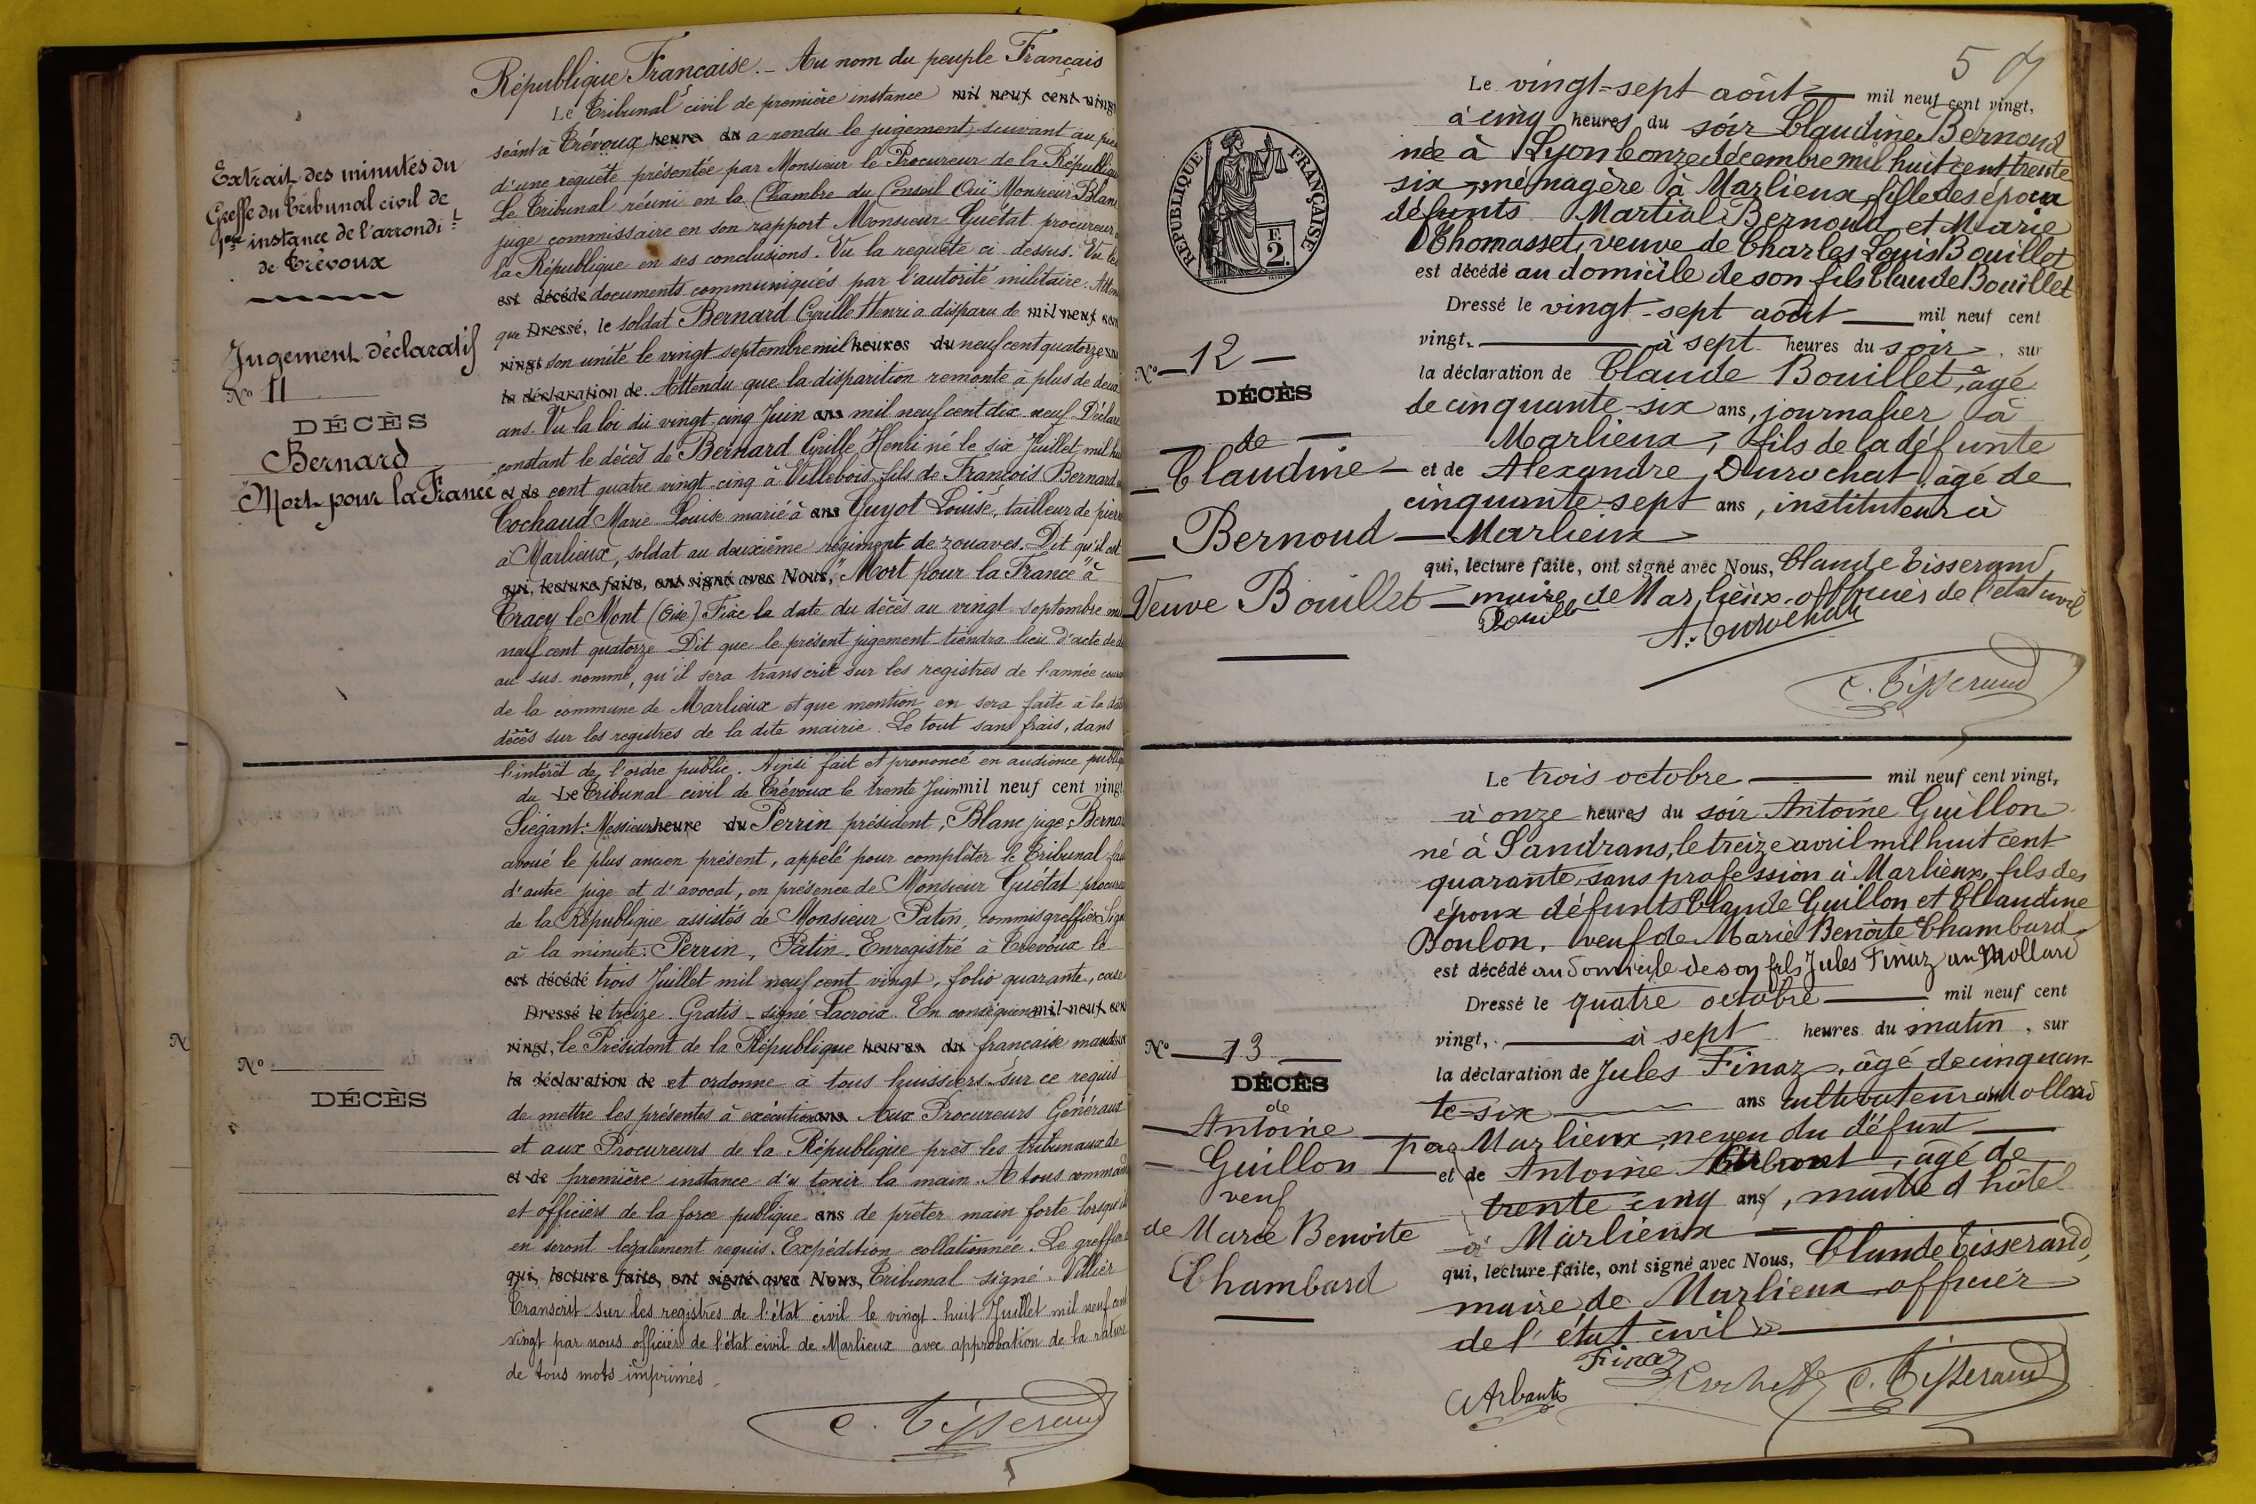 Extrait des minutes du
Greffe du Tribunal civil de
1ère instance de l'arrondit
de Trévoux
Jugement déclaratif
No 11
DÉCÈS
Bernard
"Mort pour la France"
République Française. - Au nom du peuple Français
Le Tribunal civil de première instance mil neuf cent vingt
séant à Trévoux heure du a rendu le jugement suivant au
d'une requête présentée par Monsieur le Procureur de la République
Le Tribunal réuni en la Chambre du Conseil Ouï Monsieur Blanc
juge commissaire en son rapport Monsieur Guétat procureur
la République en ses conclusions. Vu la requête ci dessus. Vu les
est décédé documents communiqués par l'autorité militaire. Attendu
que Dressé, le soldat Bernard Cyrille Henri a disparu de mil neuf cent
vingt son unité le vingt septembre mil heures du neuf cent quatorze
la déclaration de Attendu que la disparition remonte à plus de deux
ans. Vu la loi du vingt cinq Juin ans mil neuf cent dix neuf Déclare
constant le décès de Bernard Cyrille Henri né le six Juillet mil huit
et de cent quatre vingt cinq à Villebois fils de François Bernard
Cochaud Marie Louise marié à ans Guyot Louise, tailleur de pierre
à Marlieux, soldat au deuxième régiment de zouaves. Dit qu'il est
qui, lecture faite, ont signé avec Nous, "Mort pour la France" à
Tracy le Mont (Oise) Fixe la date du décès au vingt septembre mil
neuf cent quatorze Dit que le présent jugement tiendra lieu d'acte de
au sus-nommé, qu'il sera transcrit sur les registres de l'année
de la commune de Marlieux et que mention en sera faite à la date
décès sur les registres de la dite mairie. Le tout sans frais, dans
l'intérêt de l'ordre public. Ainsi fait et prononcé en audience publique
du Le Tribunal civil de Trévoux le trente Juin mil neuf cent vingt
Siégant: Messieurs heure du Perrin président, Blanc juge, Bernard
avoué le plus ancien présent, appelé pour compléter le Tribunal
d'autre juge et d'avocat, en présence de Monsieur Guétat procureur
de la République assistés de Monsieur Patin, commis greffier. Signé
à la minute: Perrin, Patin. Enregistré à Trévoux le
est décédé trois Juillet mil neuf cent vingt, folio quarante, case
Dressé le treize. Gratis - signé Lacroix. En conséquence mil neuf cent
vingt, le Président de la République heures du française mande
la déclaration de et ordonne à tous huissiers sur ce requis
de mettre les présentes à exécution ans Aux Procureurs Généraux
et aux Procureurs de la République près les tribunaux de
et de première instance d'y tenir la main. A tous commandants
et officiers de la force publique ans de prêter main forte lorsqu'ils
en seront légalement requis. Expédition collationnée. Le greffier
qui, lecture faite, ont signé avec Nous, Tribunal signé. Villier
Transcrit sur les registres de l'état civil le vingt-huit Juillet mil neuf cent
vingt par nous officier de l'état civil de Marlieux avec approbation de la rature
de tous mots imprimés.
C. Tisserand
No
DÉCÈS
57
RÉPUBLIQUE FRANÇAISE
2
Le vingt-sept août mil neuf cent vingt,
à cinq heures du soir Claudine Bernoud
née à Lyon le onze décembre mil huit cent trente
six, ménagère à Marlieux, fille des époux
défunts Martial Bernoud et Marie
Thomasset, veuve de Charles Louis Bouillet
est décédé au domicile de son fils Claude Bouillet
Dressé le vingt-sept août mil neuf cent
vingt, à sept heures du soir, sur
la déclaration de Claude Bouillet, âgé
de cinquante-six ans, journalier à
Marlieux, fils de la défunte
et de Alexandre Durochat, âgé de
cinquante-sept ans, instituteur à
Marlieux
qui, lecture faite, ont signé avec Nous, Claude Tisserand
maire de Marlieux, officier de l'état civil
Bouillet
A. Durochat
C. Tisserand
No 12
DÉCÈS
de
Claudine
Bernoud
Veuve Bouillet
Le trois octobre mil neuf cent vingt,
à onze heures du soir Antoine Guillon
né à Sandrans, le treize avril mil huit cent
quarante, sans profession à Marlieux, fils des
époux défunts Claude Guillon et Claudine
Boulon, veuf de Marie Benoîte Chambard
est décédé au domicile de son fils Jules Finaz au Mollard
Dressé le quatre octobre mil neuf cent
vingt, à sept heures du matin, sur
la déclaration de Jules Finaz, âgé de cinquan-
te-six ans cultivateur au Mollard
par Marlieux, neveu du défunt
et de Antoine, âgé de
trente-cinq ans, maître d'hôtel
à Marlieux
qui, lecture faite, ont signé avec Nous, Claude Tisserand,
maire de Marlieux officier
de l'état civil
Finaz
C. Tisserand
No 13
DÉCÈS
de
Antoine
Guillon
veuf
de Marie Benoite
Chambard